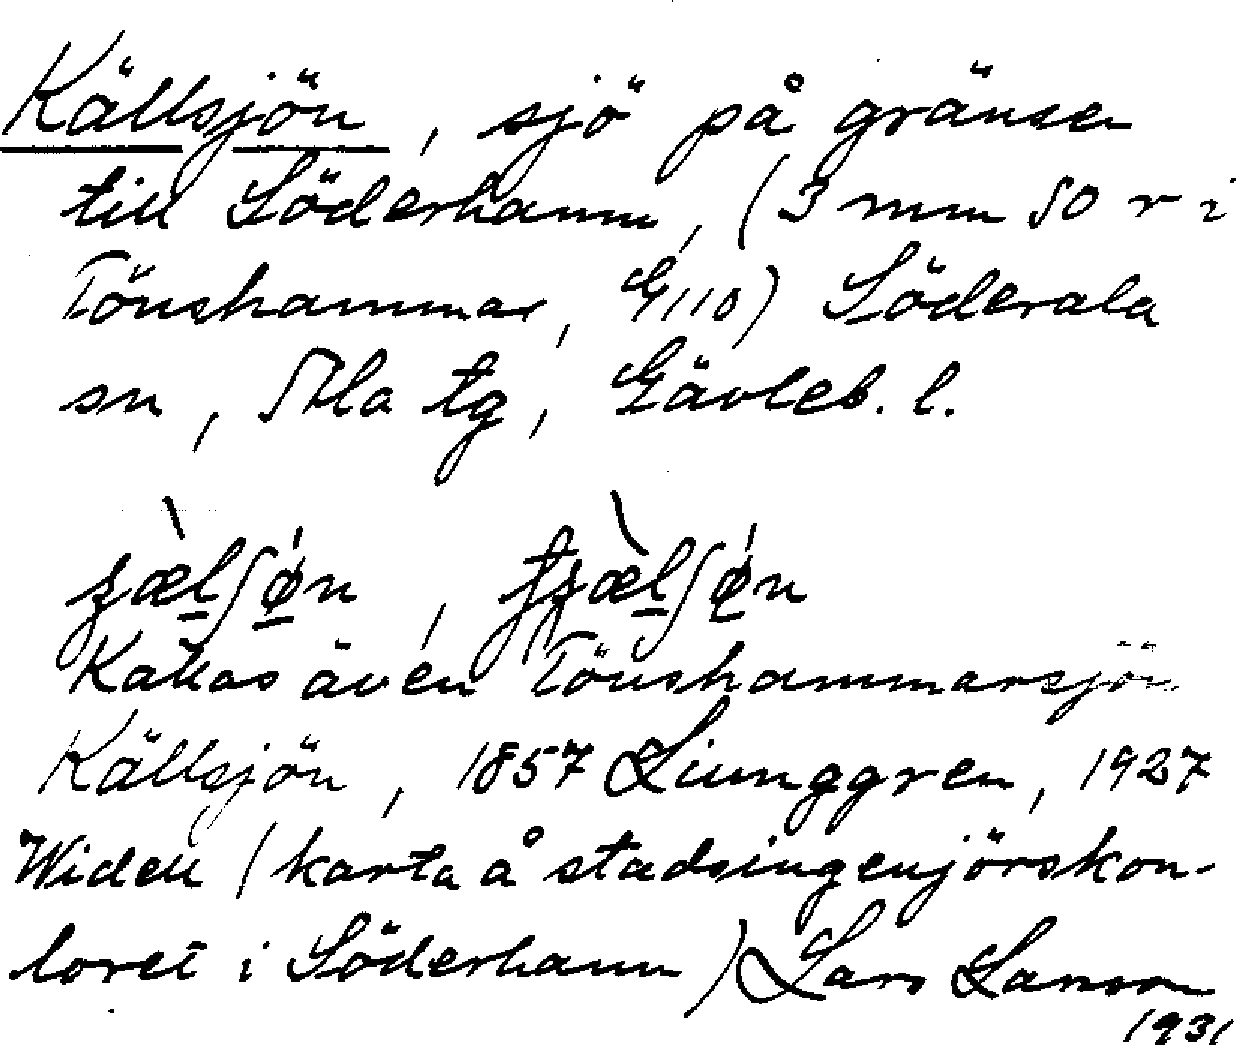 Källsjön, sjö på gränsen
till Söderhamn, (3 mm SO r i
Tönshammar, G110) Söderala
sn, Ala tg, Gävleb. l.
Kallas även Tönshammarsjön
Källsjön, 1857 Liunggren, 1927
Widen (karta å stadsingenjörskon-
toret i Söderhamn) Lars Larson
1931